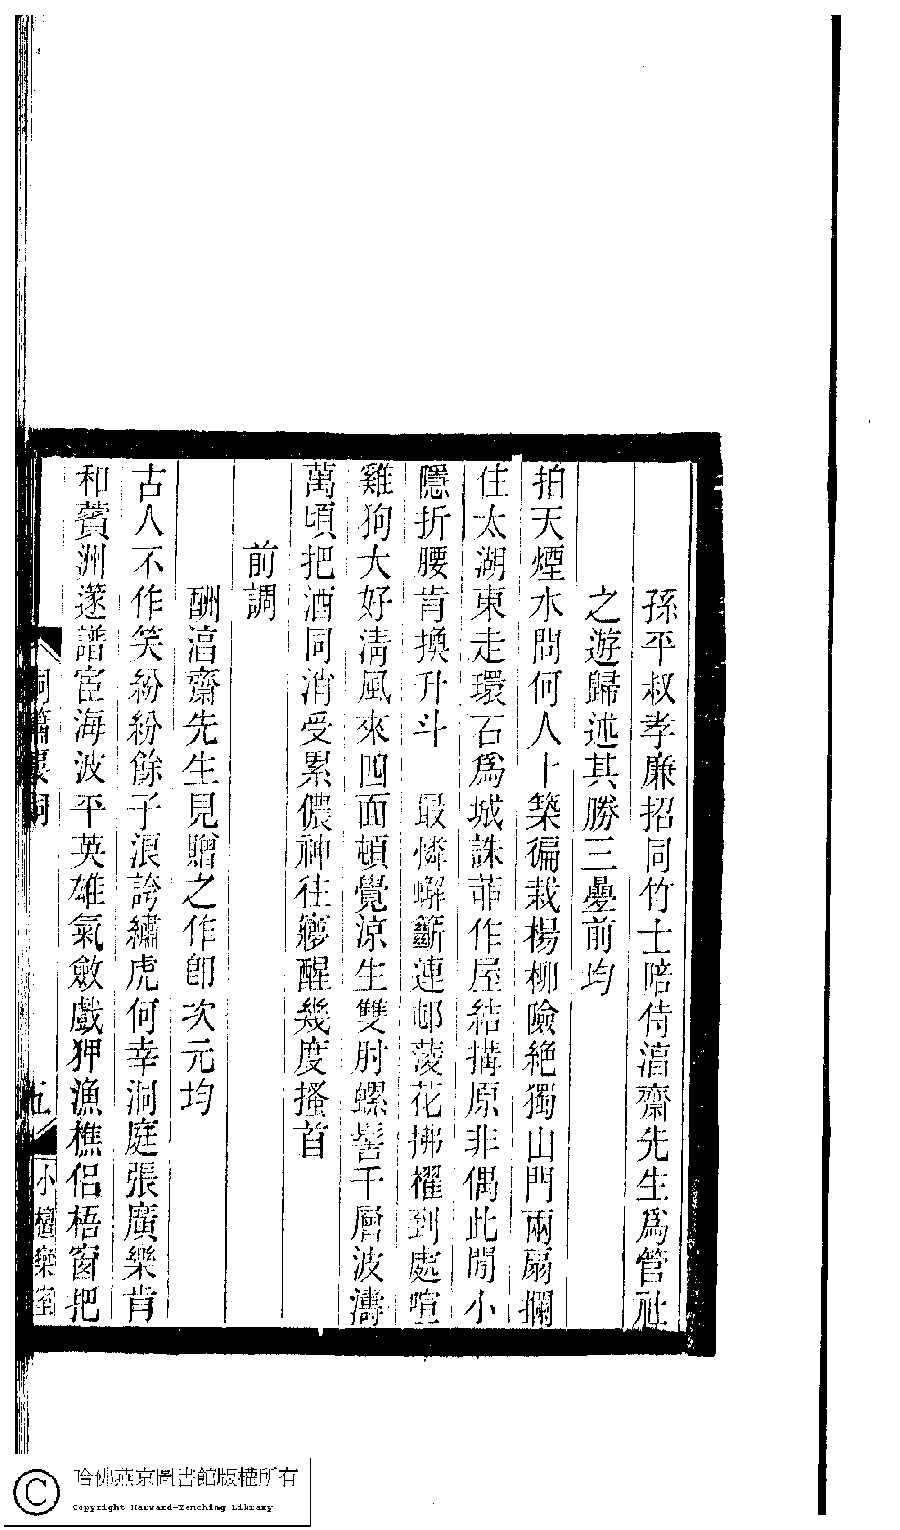 孫平叔孝廉招同竹士陪侍湻齋先生爲管社
之遊歸述其勝三疊前均
拍天煙水問何人卜築徧栽楊柳險絶獨山門兩扇攔
住太湖東走環石爲城誅茆作屋結搆原非偶此閒小
隱折腰肯換升斗　最憐蠏籪連邨菱花拂櫂到處喧
雞狗大好淸風來四面頓覺涼生雙肘螺髻千層波濤
萬頃把酒同消受累儂神往夢醒幾度搔首
前調
酬湻齋先生見贈之作卽次元均
古人不作笑紛紛餘子浪誇繡虎何幸洞庭張廣樂肯
和薲洲邃譜宦海波平英雄氣斂戲狎漁樵侶梧窗把
洞簫
詞
五
小檀欒室
哈佛燕京圖書館版權所有
Copyright Harvard-Yenching Library